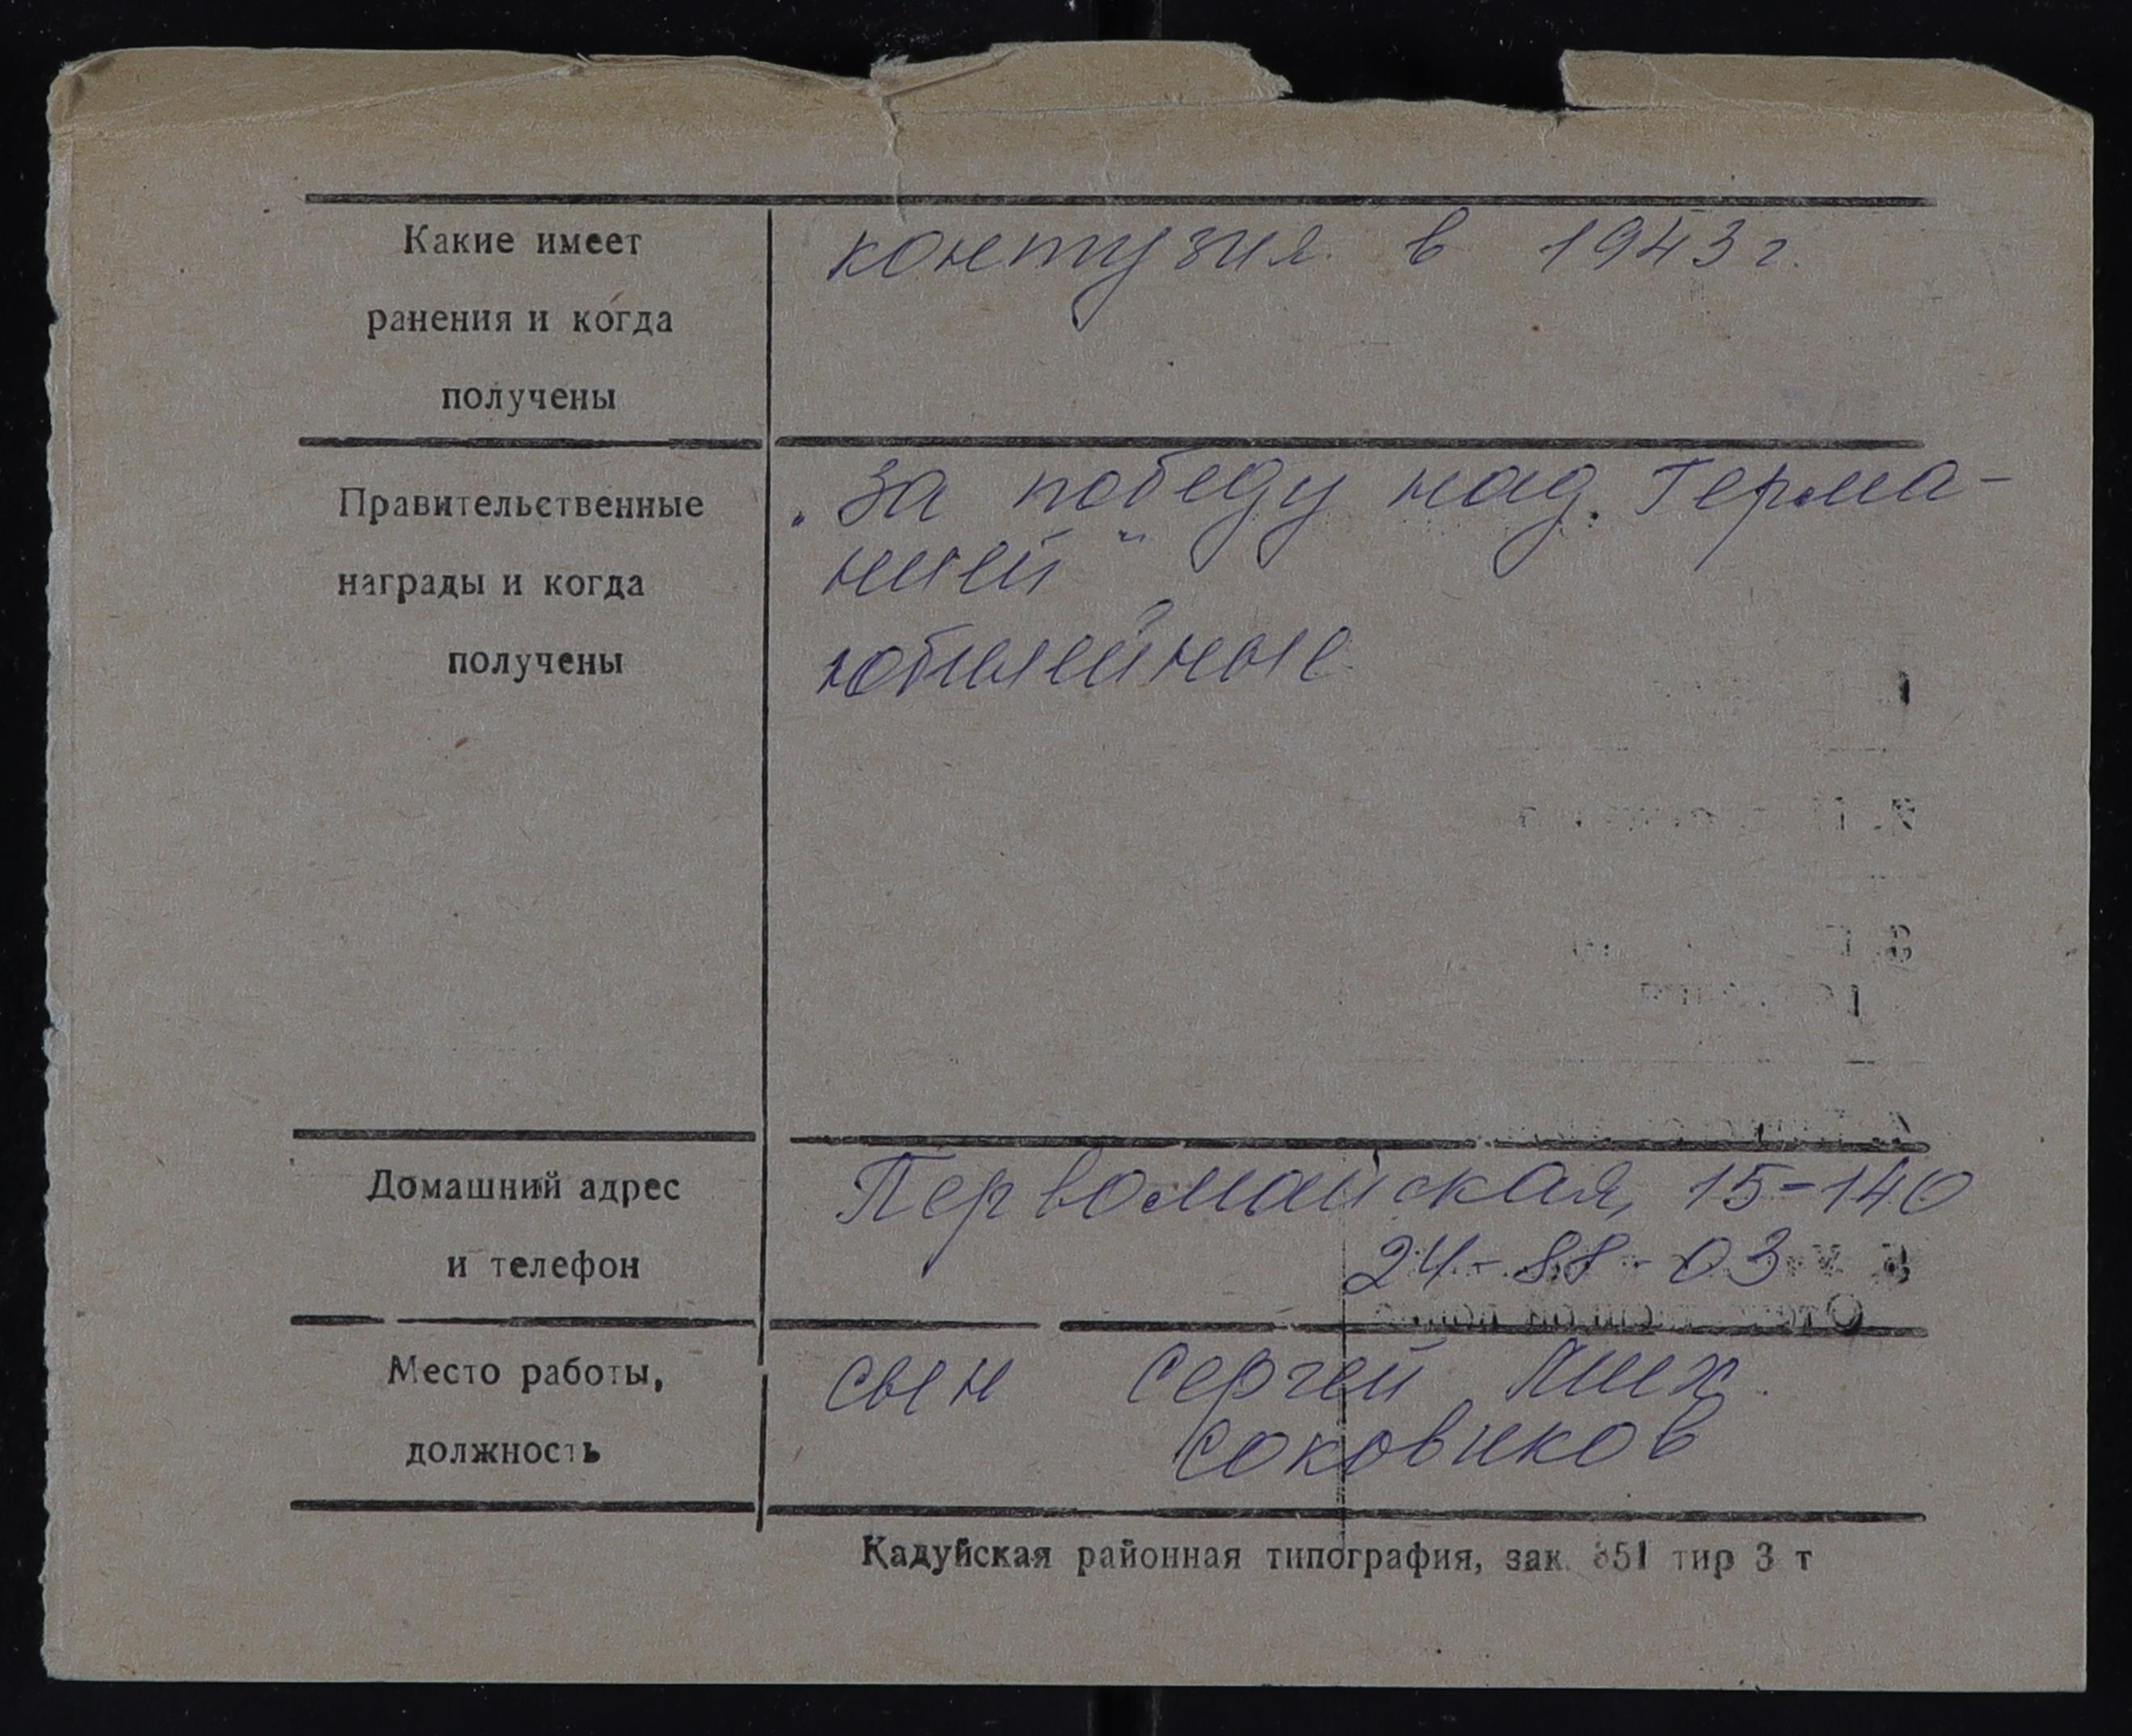 Какие имеет
ранения и когда
получены
контузия в 1943 г.
Правительственные
награды и когда
получены
„За победу над Герма-
нией"
юбилейные
Домашний адрес
и телефон
Первомайская, 15-140
24-88-03
Место работы,
должность
сын Сергей Мих.
Соковиков
Кадуйская районная типография, зак. 851 тир 3 т